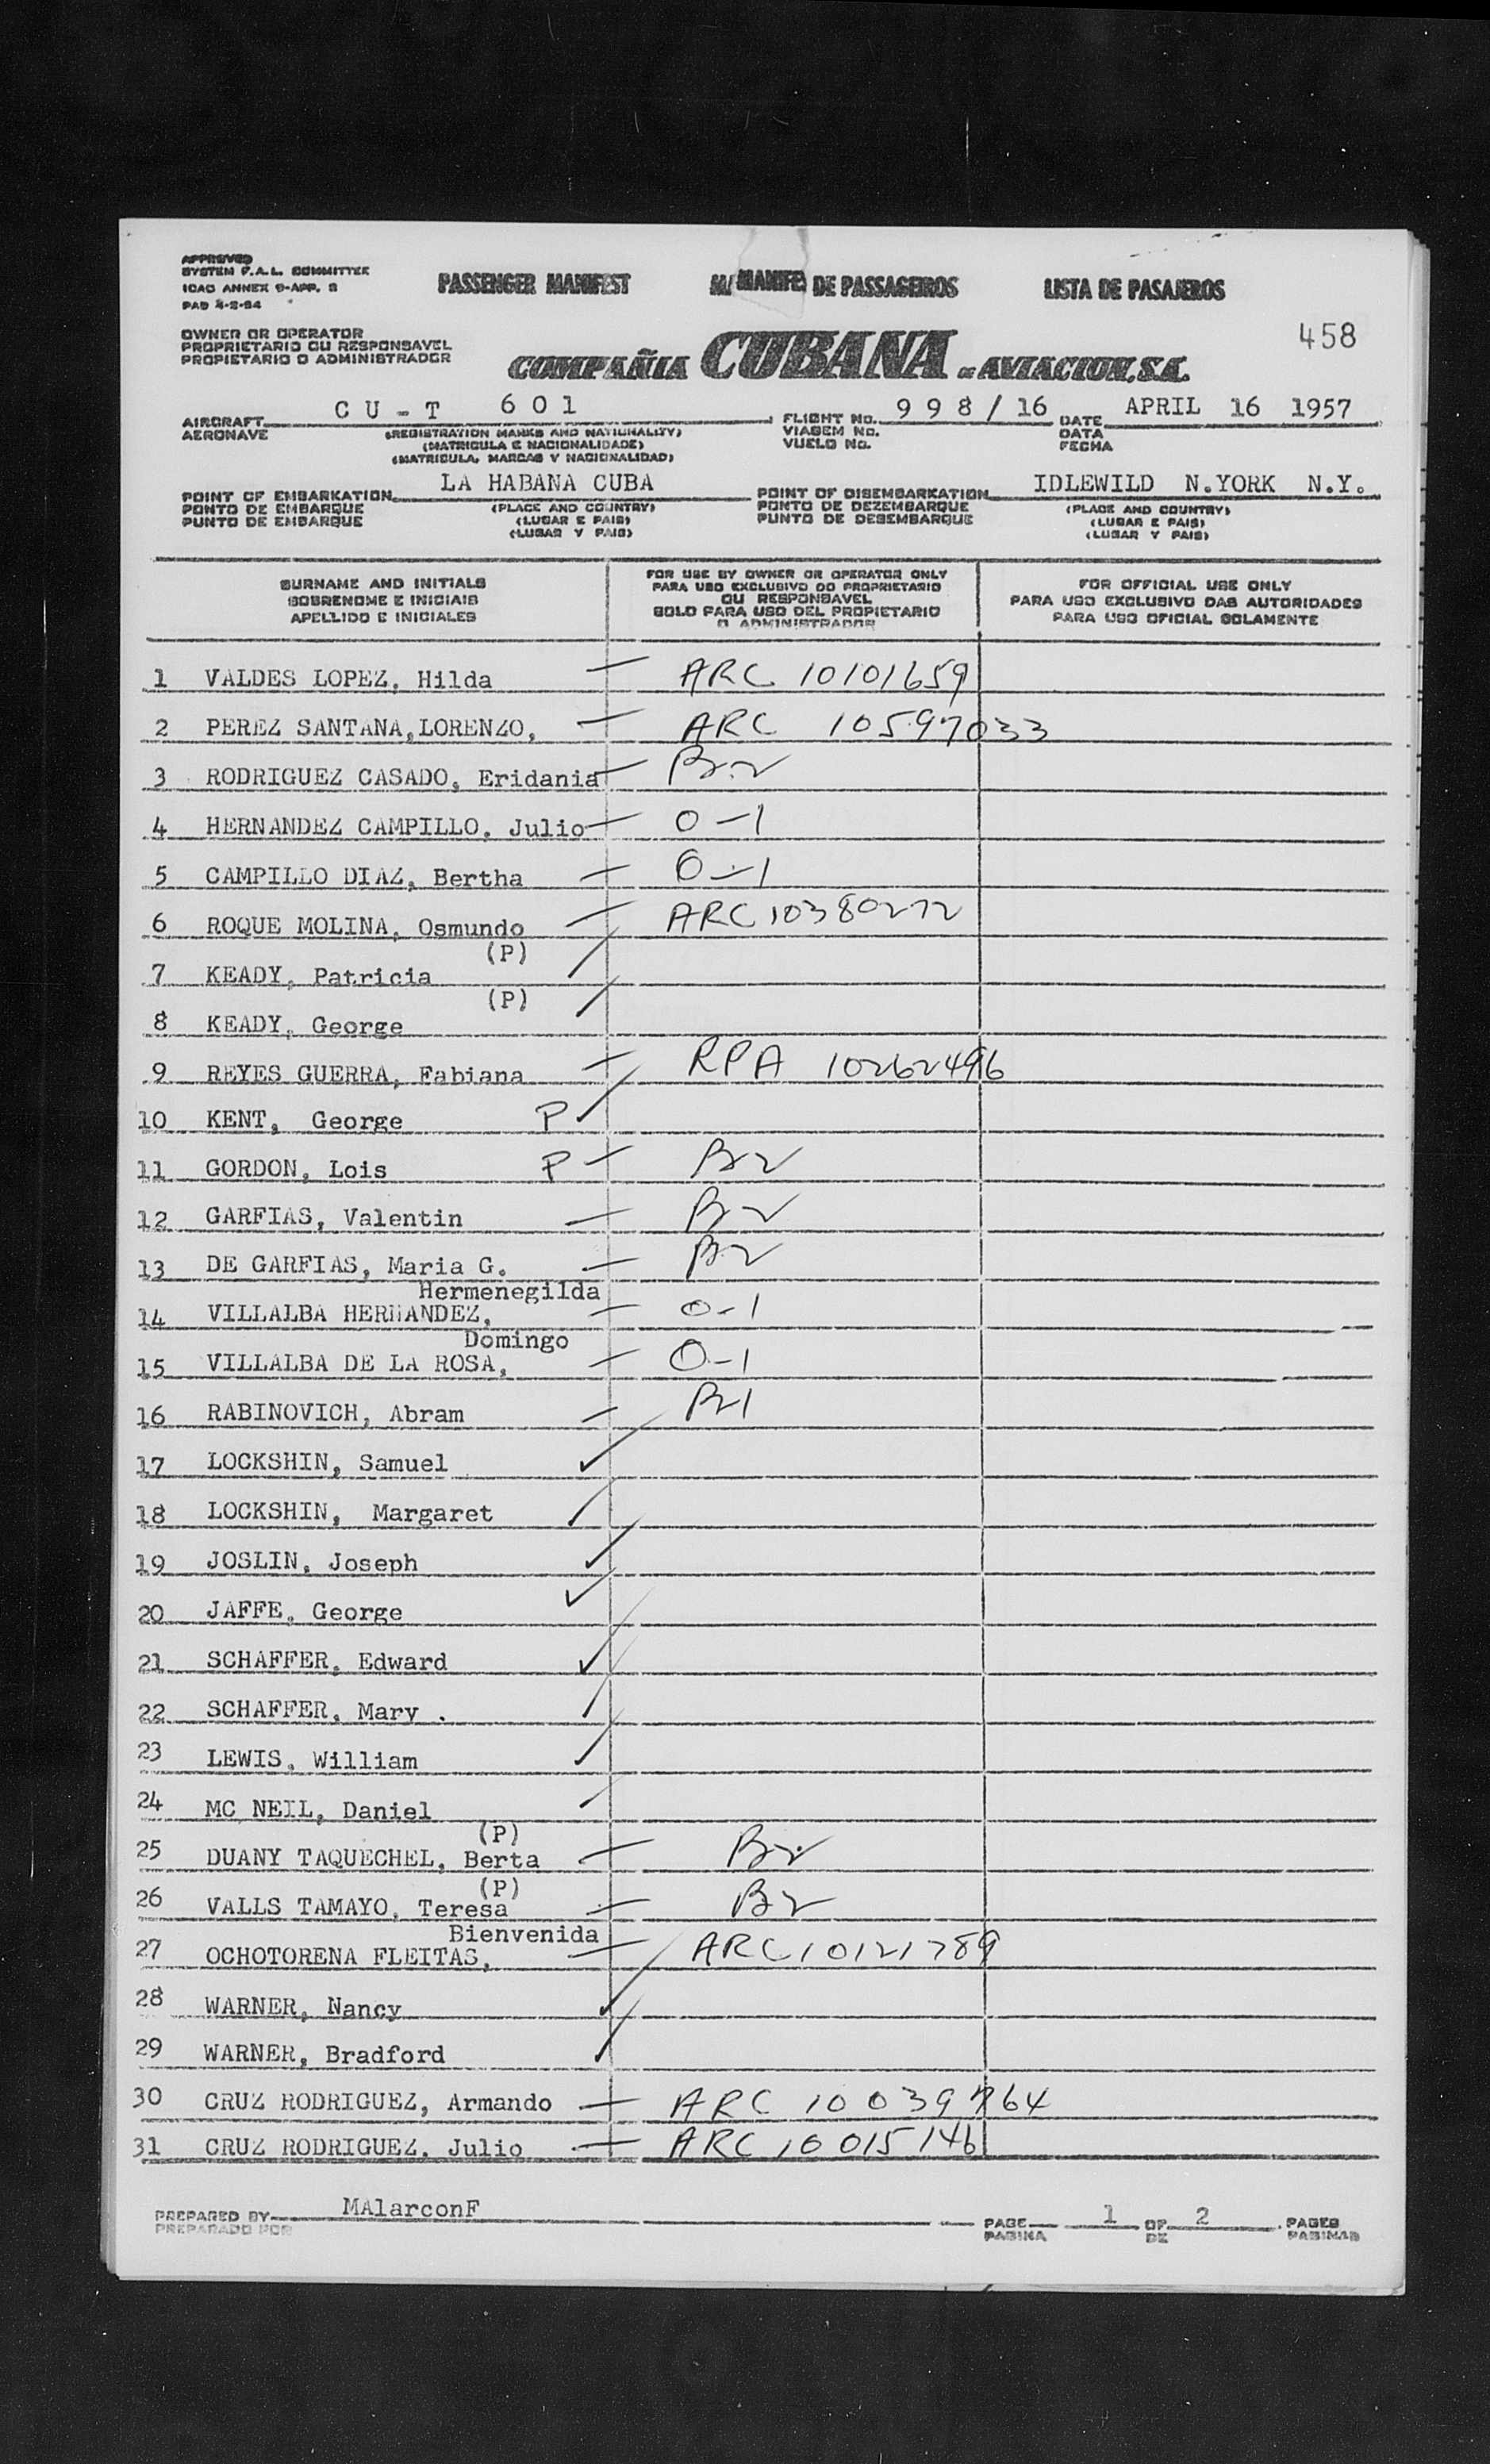 APPROVED
SYSTEM F.A.L. COMMITTEE
ICAO ANNEX 9-APP. 3
PAD 4-2-54
PASSENGER MANIFEST M/ MANIFE DE PASSAGEIROS LISTA DE PASAJEROS
458
OWNER OR OPERATOR
PROPRIETARIO OU RESPONSAVEL
PROPIETARIO O ADMINISTRADOR
COMPAÑIA CUBANA DE AVIACION, S.A.
AIRCRAFT CU-T 601 FLIGHT No. 998/16 DATE APRIL 16 1957
AERONAVE (REGISTRATION MARKS AND NATIONALITY) VIAGEM NO. DATA
(MATRICULA E NACIONALIDADE) VUELO No. FECHA
(MATRICULA, MARCAS Y NACIONALIDAD)
POINT OF EMBARKATION LA HABANA CUBA POINT OF DISEMBARKATION IDLEWILD N.YORK N.Y.
PONTO DE EMBARQUE (PLACE AND COUNTRY) PONTO DE DEZEMBARQUE (PLACE AND COUNTRY)
PUNTO DE EMBARQUE (LUGAR E PAIS) PUNTO DE DESEMBARQUE (LUGAR E PAIS)
(LUGAR Y PAIS) (LUGAR Y PAIS)
SURNAME AND INITIALS
SOBRENOME E INICIAIS
APELLIDO E INICIALES
FOR USE BY OWNER OR OPERATOR ONLY
PARA USO EXCLUSIVO DO PROPRIETARIO
OU RESPONSAVEL
SOLO PARA USO DEL PROPIETARIO
O ADMINISTRADOR
FOR OFFICIAL USE ONLY
PARA USO EXCLUSIVO DAS AUTORIDADES
PARA USO OFICIAL SOLAMENTE
1 VALDES LOPEZ, Hilda — ARC 10101659
2 PEREZ SANTANA,LORENZO, — ARC 10597033
3 RODRIGUEZ CASADO, Eridania — B-2
4 HERNANDEZ CAMPILLO, Julio — 0-1
5 CAMPILLO DIAZ, Bertha — 0-1
6 ROQUE MOLINA, Osmundo — ARC 10380272
(P)
7 KEADY, Patricia
(P)
8 KEADY, George
9 REYES GUERRA, Fabiana — RPA 10262496
10 KENT, George P
11 GORDON, Lois P — B2
12 GARFIAS, Valentin — B2
13 DE GARFIAS, Maria G. — B2
Hermenegilda
14 VILLALBA HERNANDEZ, — 0-1
Domingo
15 VILLALBA DE LA ROSA, — 0-1
16 RABINOVICH, Abram — B1
17 LOCKSHIN, Samuel ✓
18 LOCKSHIN, Margaret ✓
19 JOSLIN, Joseph ✓
20 JAFFE, George ✓
21 SCHAFFER, Edward ✓
22 SCHAFFER, Mary . ✓
23 LEWIS, William ✓
24 MC NEIL, Daniel
(P)
25 DUANY TAQUECHEL, Berta — B2
(P)
26 VALLS TAMAYO, Teresa — B2
Bienvenida
27 OCHOTORENA FLEITAS, — ARC 10121789
28 WARNER, Nancy ✓
29 WARNER, Bradford ✓
30 CRUZ RODRIGUEZ, Armando — ARC 10039764
31 CRUZ RODRIGUEZ, Julio — ARC 10015146
PREPARED BY MAlarconF PAGE 1 OF 2 PAGES
PREPARADO POR PAGINA DE PAGINAS